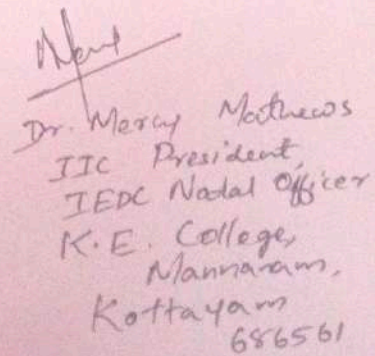 Dr. Mercy Mathews
IIC President,
IEDC Nodal Officer
K.E. College,
Mannanam,
Kottayam
686561